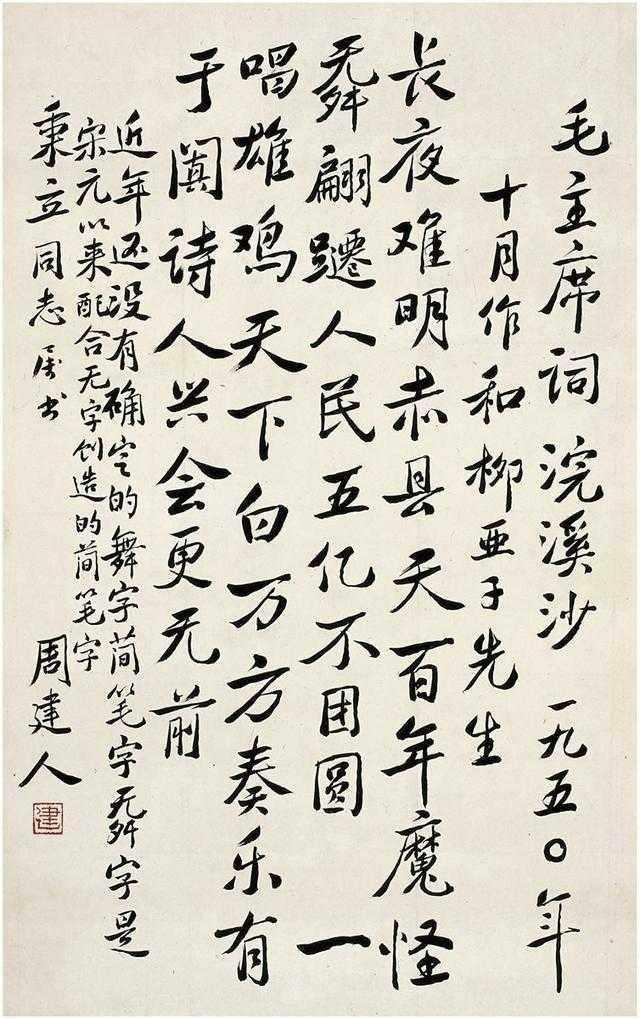 毛主席词 浣溪沙 一九五〇年
十月作和柳亚子先生
长夜难明赤县天百年魔怪
舞翩躚人民五亿不团圆一
唱雄鸡天下白万方奏乐有
于阗诗人兴会更无前
近年还没有确定的舞字简笔字舞字是
宋元以来配合无字创造的简笔字
秉立同志属书 周建人
建